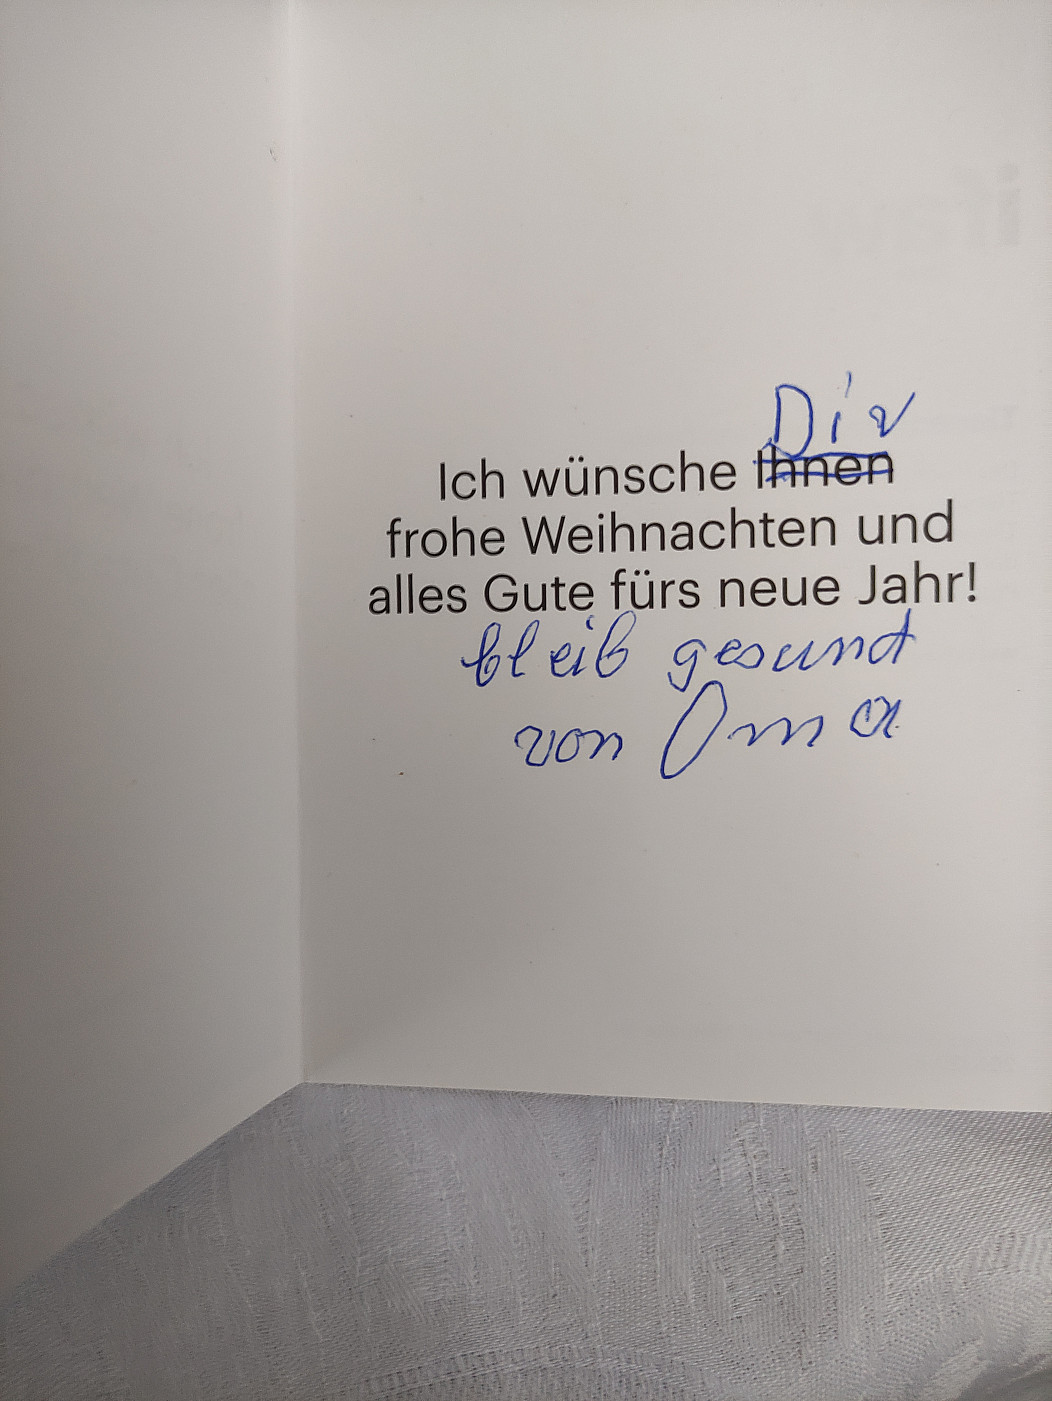 Dir
Ich wünsche Ihnen
frohe Weihnachten und
alles Gute fürs neue Jahr!
bleib gesund
von Oma